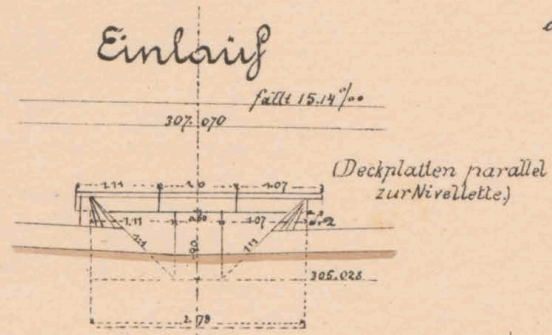 Einlauf
fällt 15.14‰
307.070
(Deckplatten parallel
zur Nivellette)
1.11 1.07
1.11 0.60 1.07
1:1 1:1
305.028
2.78